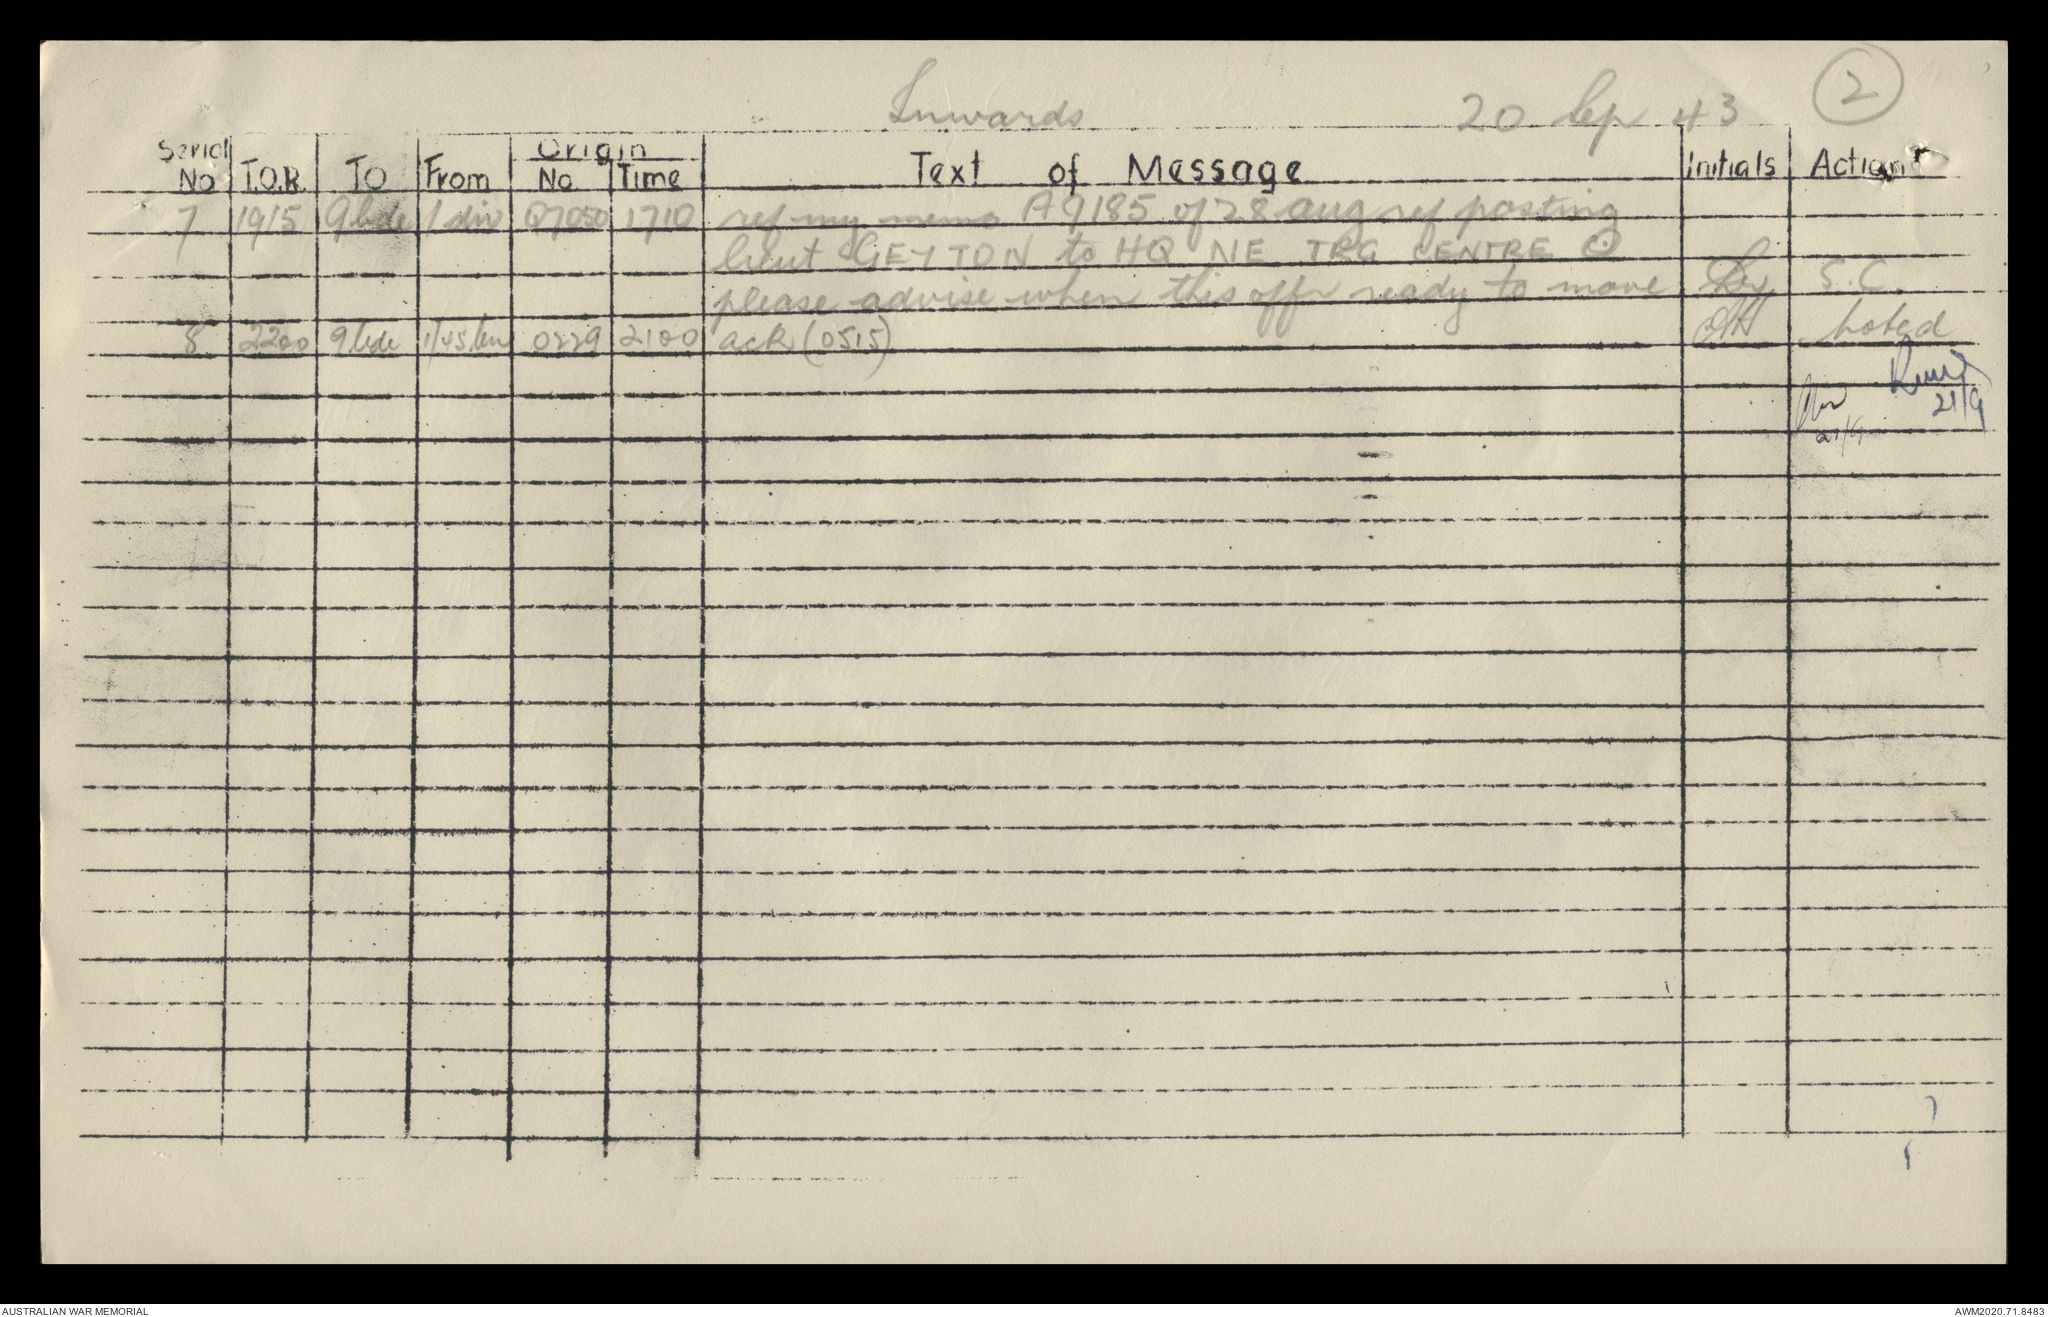 Inwards 20 Sep 43 2
Serial No T.O.R. TO From Origin No Time Text of Message Initials Action
7 1915 9 bde 1 div Q7050 1710 ref my memo A9185 of 28 aug ref posting
lieut GEYTON to HQ NE TRG CENTRE ⊙
please advise when this offr ready to move S.C.
8 2200 9 bde 1/45 bn 0229 2100 ack (0515) noted
21/9
21/9
AUSTRALIAN WAR MEMORIAL AWM2020.71.8483